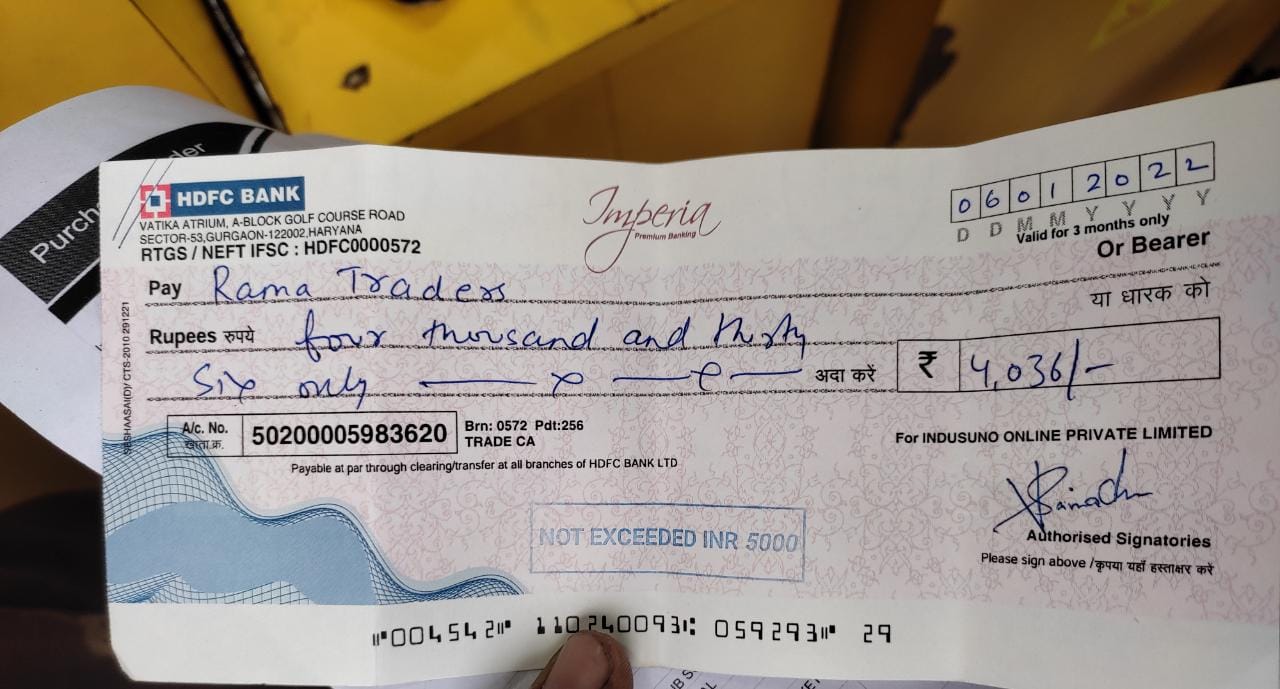 Purch
der
HDFC BANK
VATIKA ATRIUM, A-BLOCK GOLF COURSE ROAD
SECTOR-53,GURGAON-122002,HARYANA
RTGS / NEFT IFSC : HDFC0000572
Imperia
Premium Banking
06012022
D D M M Y Y Y Y
Valid for 3 months only
Or Bearer
या धारक को
Pay Rama Traders
Rupees रुपये four thousand and thirty
Six only अदा करें ₹ 4,036/-
A/c. No.
खाता.क्र.
50200005983620
Brn: 0572 Pdt:256
TRADE CA
Payable at par through clearing/transfer at all branches of HDFC BANK LTD
For INDUSUNO ONLINE PRIVATE LIMITED
NOT EXCEEDED INR 5000
Authorised Signatories
Please sign above /कृपया यहाँ हस्ताक्षर करें
CTS-2010 291221
⑈004542⑈ 110240093⑆ 059293⑈ 29